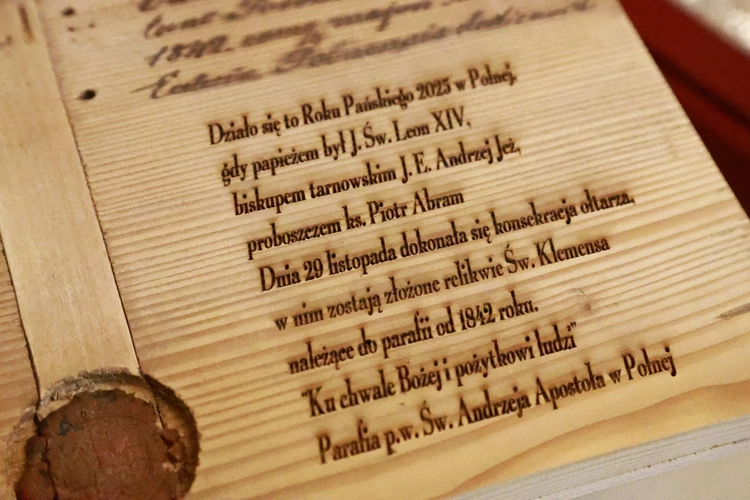 1842
Działo się to Roku Pańskiego 2025 w Polnej,
gdy papieżem był J. Św. Leon XIV,
biskupem tarnowskim J. E. Andrzej Jeż,
proboszczem ks. Piotr Abram
Dnia 29 listopada dokonała się konsekracja ołtarza,
w nim zostają złożone relikwie Św. Klemensa
należące do parafii od 1842 roku.
"Ku chwale Bożej i pożytkowi ludzi"
Parafia p.w. Św. Andrzeja Apostoła w Polnej